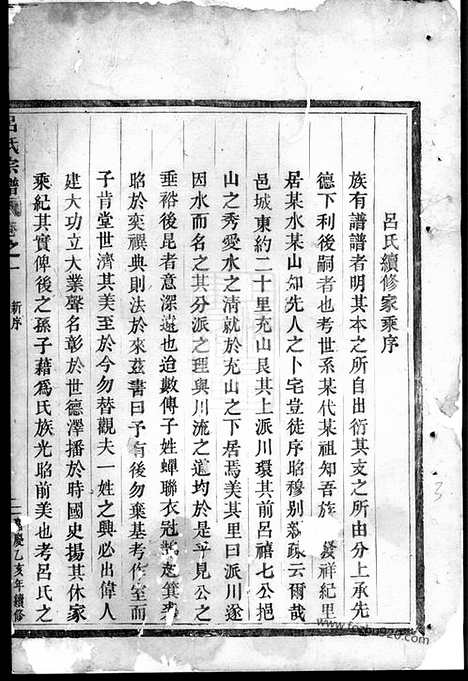 呂氏續修家乘序
族有譜譜者明其本之所自出衍其支之所由分上承先
德下利後嗣者也考世系某代某祖知吾族 發祥紀里
居某水某山知先人之卜宅豈徒序昭穆別 疎云爾哉
邑城東約二十里充山艮其上派川環其前呂禧七公挹
山之秀愛水之清就於充山之下居焉美其里曰派川遂
因水而名之其分派之理與川流之道均於是乎見公之
垂裕後昆者意深遠也迨數傳子姓蟬聯衣冠 起箕裘
昭於奕禩典則法於來茲書曰予有後勿棄基考作室而
子肯堂世濟其美至於今勿替觀夫一姓之興必出偉人
建大功立大業聲名彰於世德澤播於時國史揚其休家
乘紀其實俾後之孫子藉為氏族光昭前美也考呂氏之
呂氏宗譜 卷之一 新序
慶乙亥年續修
3
www.fozhu920.com